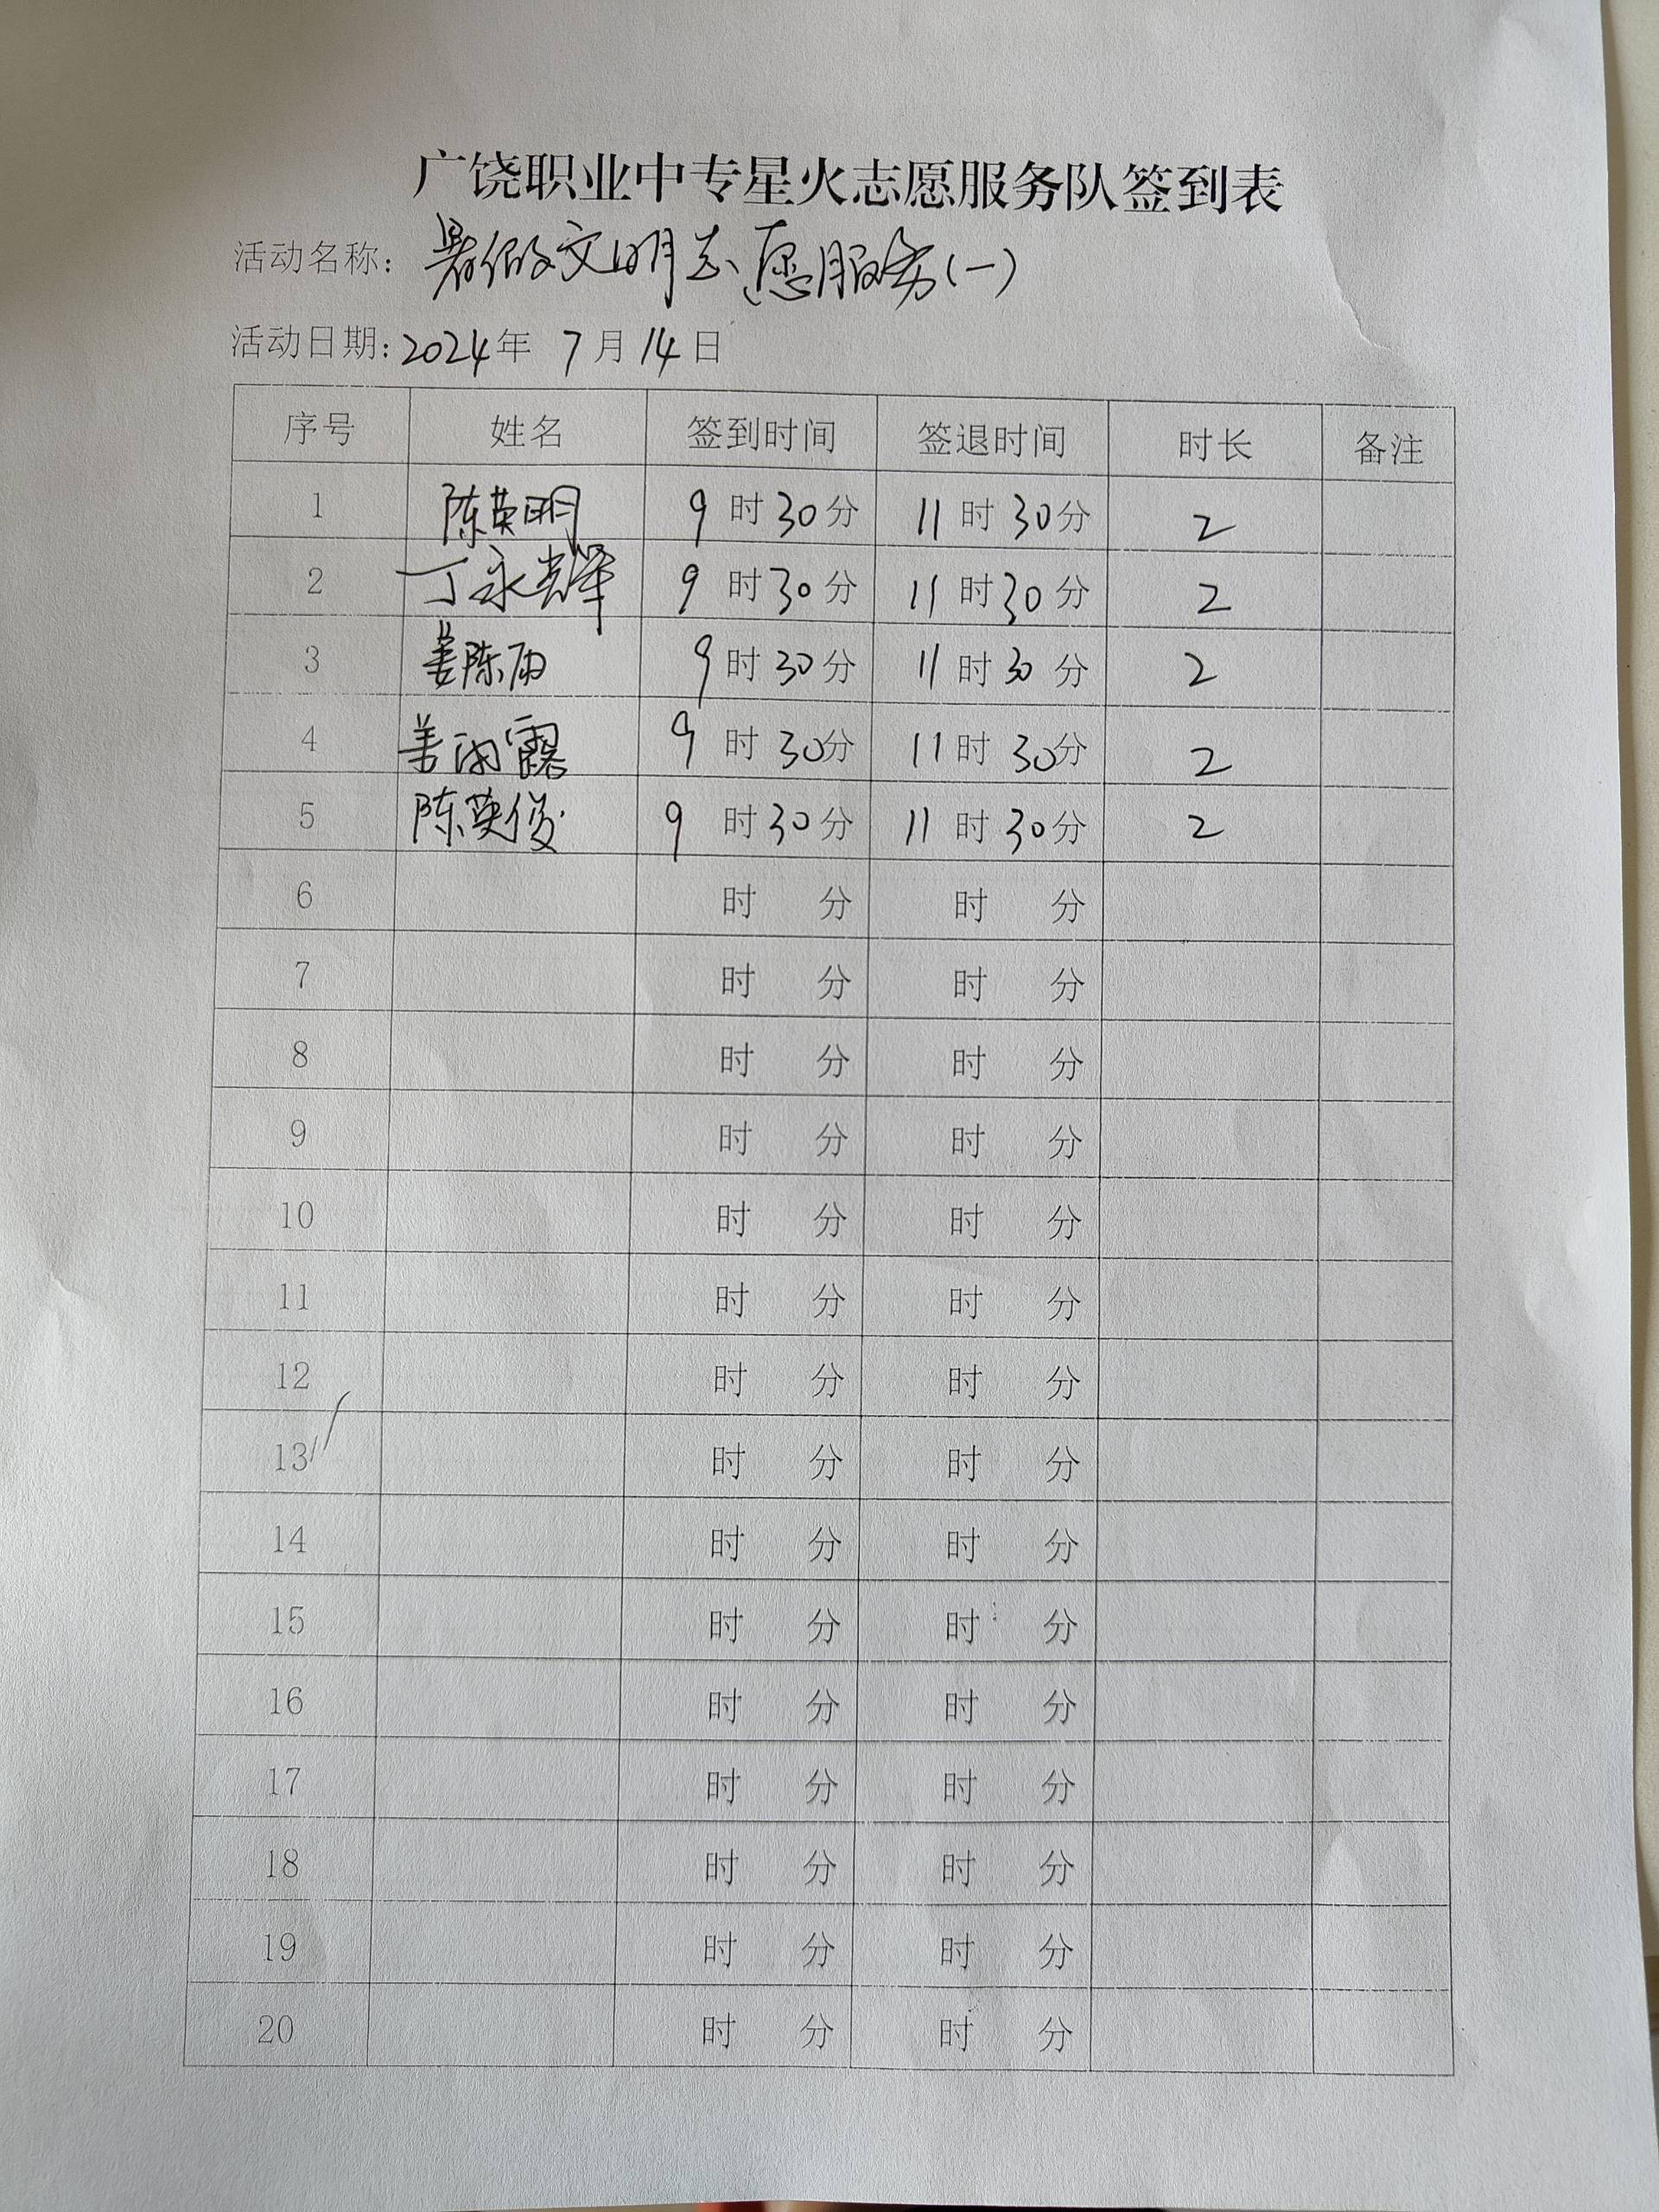 广饶职业中专星火志愿服务队签到表
活动名称：暑假文明志愿服务(一)
活动日期：2024年 7月14日
序号 姓名 签到时间 签退时间 时长 备注
1 陈英明 9时30分 11时30分 2
2 丁永辉 9时30分 11时30分 2
3 姜陈雨 9时30分 11时30分 2
4 姜雨露 9时30分 11时30分 2
5 陈英俊 9时30分 11时30分 2
6 时 分 时 分
7 时 分 时 分
8 时 分 时 分
9 时 分 时 分
10 时 分 时 分
11 时 分 时 分
12 时 分 时 分
13 时 分 时 分
14 时 分 时 分
15 时 分 时 分
16 时 分 时 分
17 时 分 时 分
18 时 分 时 分
19 时 分 时 分
20 时 分 时 分